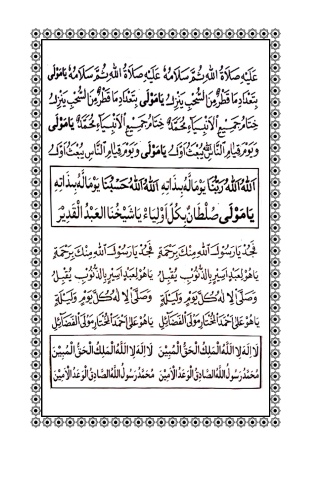 عَلَيْهِ صَلَاةُ اللهِ ثُمَّ سَلَامُهُ عَلَيْهِ صَلَاةُ اللهِ ثُمَّ سَلَامُهُ يَامَوْلَى
بِتَعْدَادِ مَا قَطْرٌ مِنَ السُّحْبِ يَنْزِلُ يَامَوْلَى بِتَعْدَادِ مَا قَطْرٌ مِنَ السُّحْبِ يَنْزِلُ
خِتَامُ جَمِيعِ الْأَنْبِيَاءِ مُحَمَّدٌ خِتَامُ جَمِيعِ الْأَنْبِيَاءِ مُحَمَّدٌ يَامَوْلَى
وَيَوْمَ قِيَامِ النَّاسِ يُبْعَثُ أَوَّلُ يَامَوْلَى وَيَوْمَ قِيَامِ النَّاسِ يُبْعَثُ أَوَّلُ
اَللهُ اَللهُ رَبُّنَا يَوْمَالَهُ بِذَاتِهِ اَللهُ اَللهُ حَسْبُنَا يَوْمَالَهُ بِذَاتِهِ
يَامَوْلَى صُلْطَانْ بِكُلِّ اَوْلِيَاءْ يَا شَيْخُنَا الْعَبْدُ الْقَدِيرْ
فَجُدْ يَارَسُولَ اللهِ مِنْكَ بِرَحْمَةِ فَجُدْ يَارَسُولَ اللهِ مِنْكَ بِرَحْمَةِ
يَاهُوْ لِعَبْدٍ اَسِيرٍ بِالذُّنُوْبِ يُقْبِلُ يَاهُوْ لِعَبْدٍ اَسِيرٍ بِالذُّنُوْبِ يُقْبِلُ
وَصَلَّى اِلَهُ كُلَّ يَوْمٍ وَلَيْلَةٍ وَصَلَّى اِلَهُ كُلَّ يَوْمٍ وَلَيْلَةٍ
يَاهُوْ عَلَى اَحْمَدَ الْمُخْتَارِ مَوْلَى الْفَضَائِلِ يَاهُوْ عَلَى اَحْمَدَ الْمُخْتَارِ مَوْلَى الْفَضَائِلِ
لَا اِلَهَ اِلَّا اللهُ الْمَلِكُ الْحَقُّ الْمُبِيْنْ لَا اِلَهَ اِلَّا اللهُ الْمَلِكُ الْحَقُّ الْمُبِيْنْ
مُحَمَّدْ رَسُولُ اللهِ الصَّادِقُ الْوَعْدِ الْاَمِيْنْ مُحَمَّدْ رَسُولُ اللهِ الصَّادِقُ الْوَعْدِ الْاَمِيْنْ